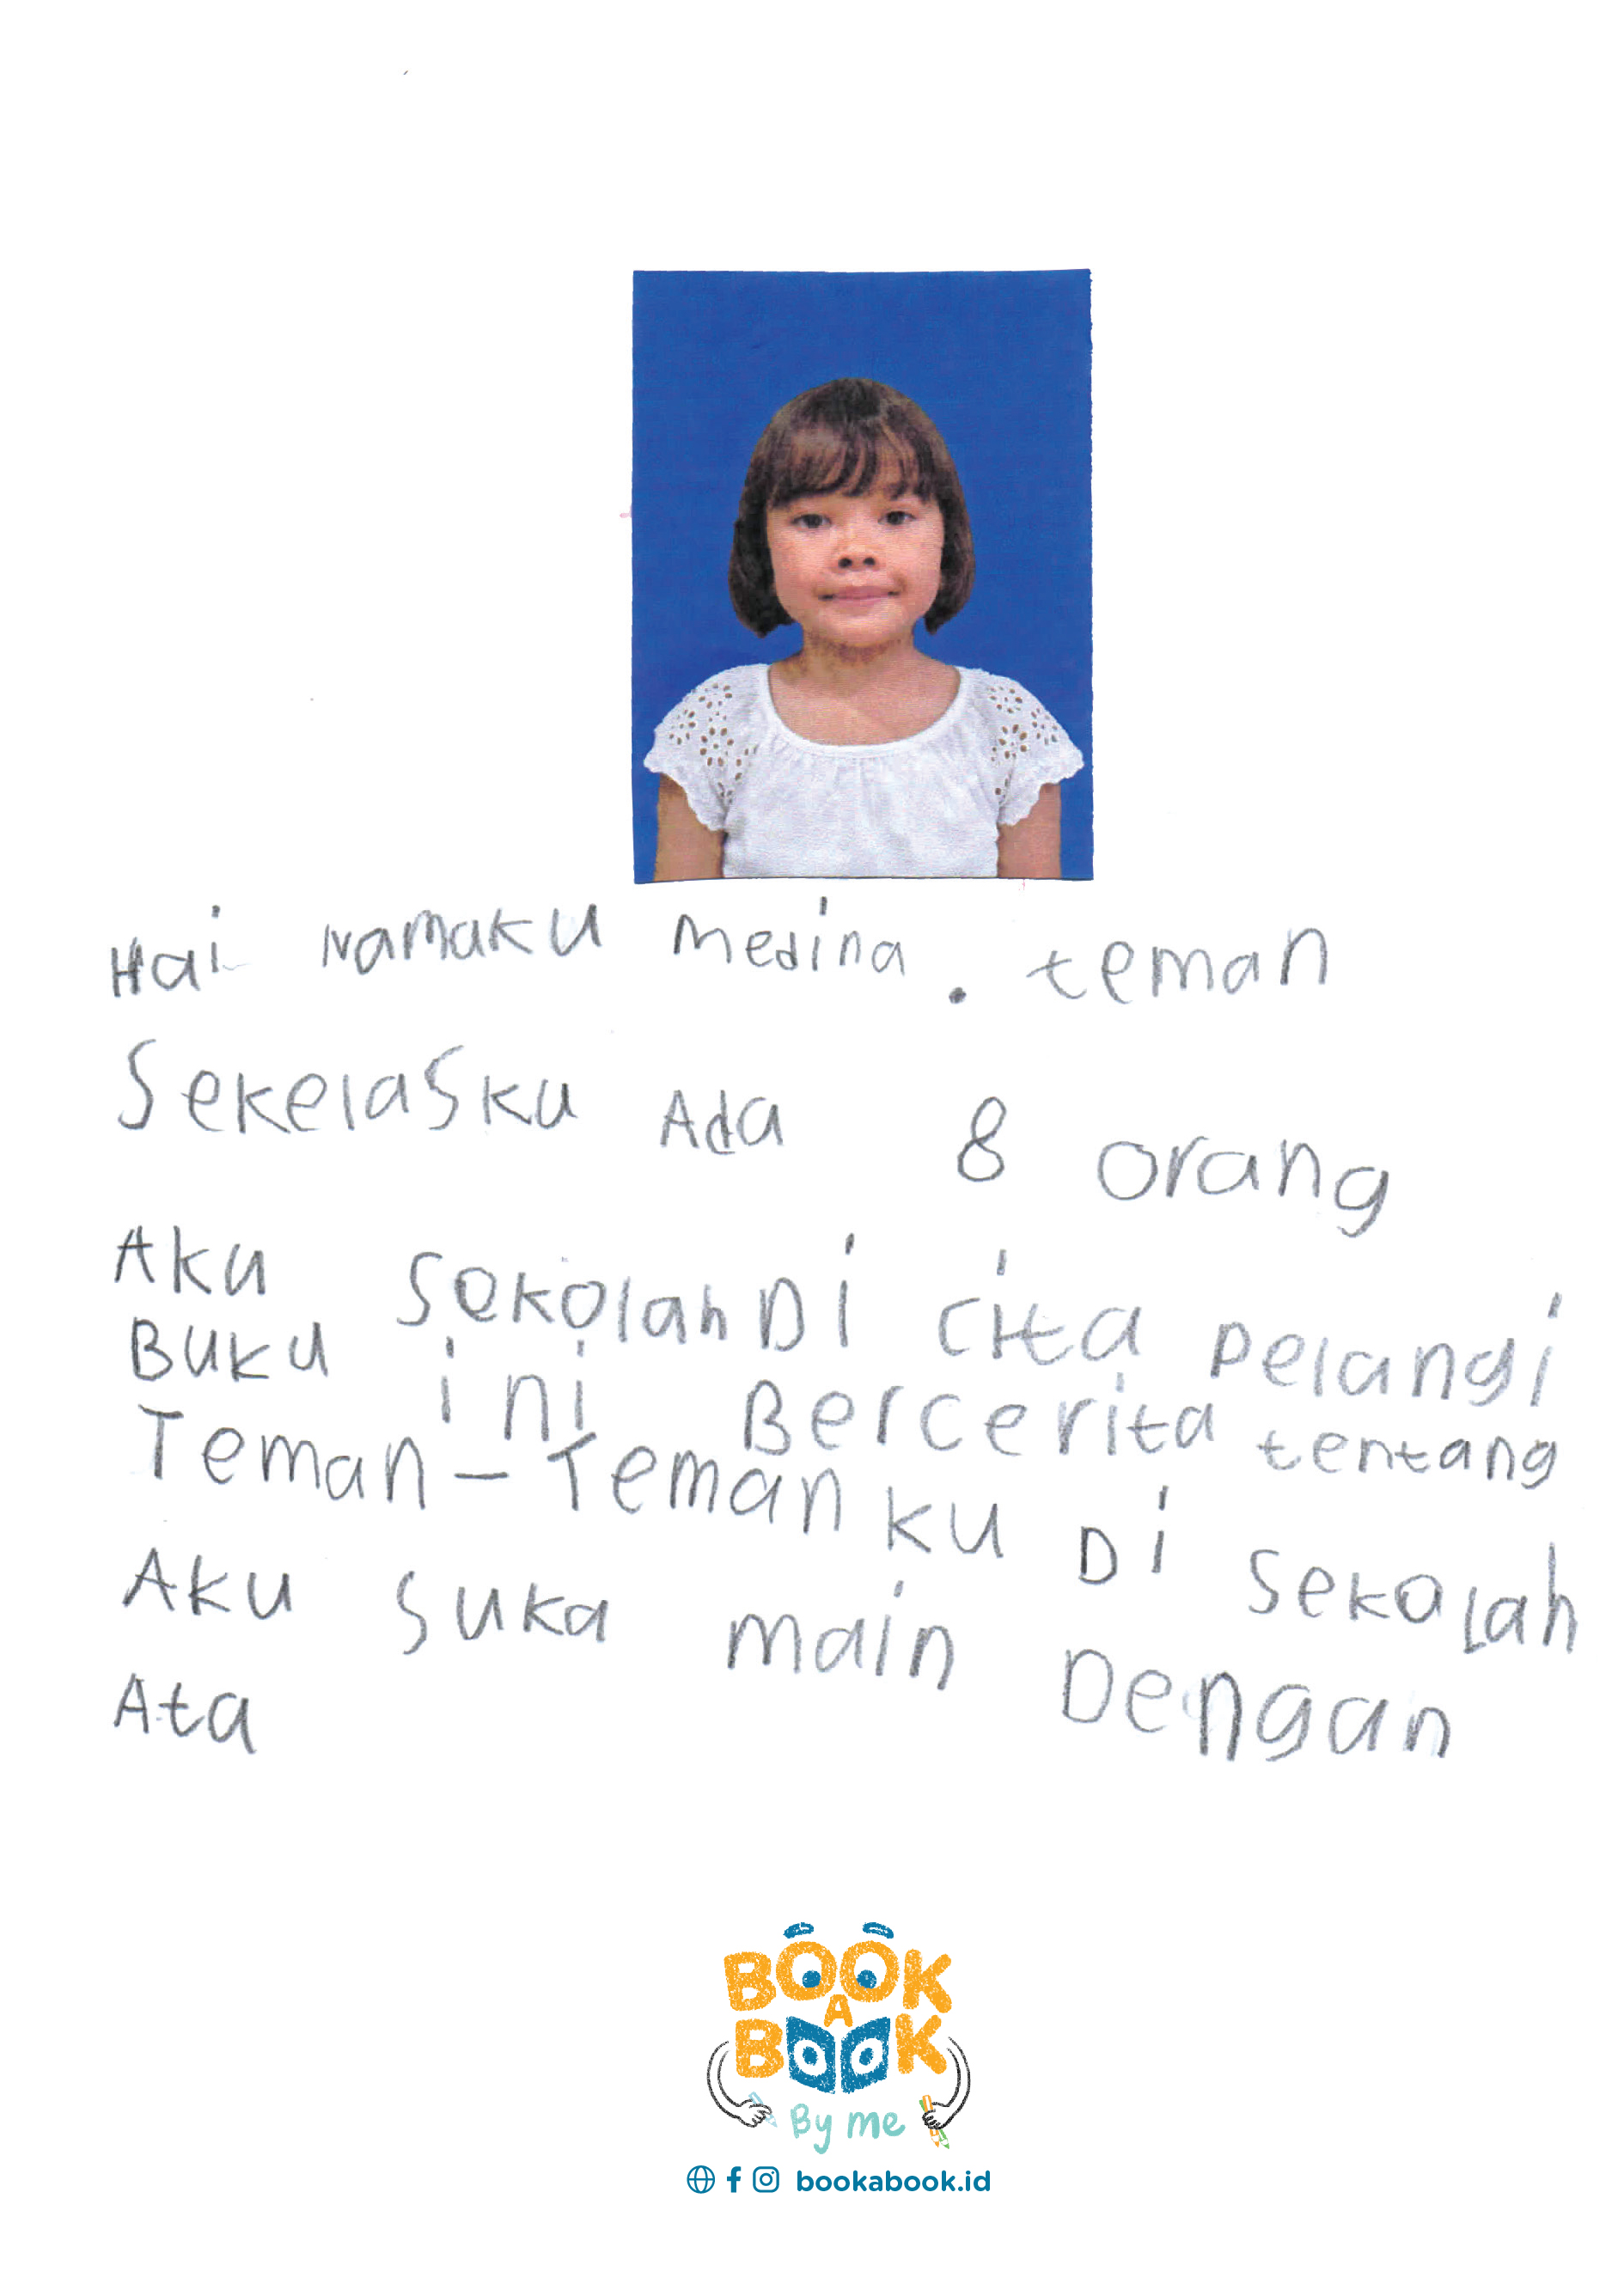 Hai Namaku Medina . teman
SekelaSku Ada 8 orang
Aku SekolahDi cita pelangi
Buku ini Bercerita tentang
Teman-Temanku Di Sekolah
Aku Suka main Dengan
Ata
BOOK
A
BOOK
By me
bookabook.id